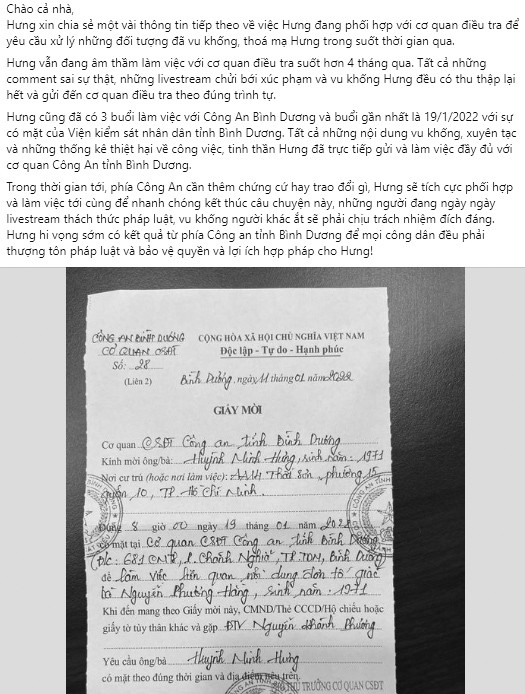 Chào cả nhà,
Hưng xin chia sẻ một vài thông tin tiếp theo về việc Hưng đang phối hợp với cơ quan điều tra để
yêu cầu xử lý những đối tượng đã vu khống, thoá mạ Hưng trong suốt thời gian qua.
Hưng vẫn đang âm thầm làm việc với cơ quan điều tra suốt hơn 4 tháng qua. Tất cả những
comment sai sự thật, những livestream chửi bới xúc phạm và vu khống Hưng đều có thu thập lại
hết và gửi đến cơ quan điều tra theo đúng trình tự.
Hưng cũng đã có 3 buổi làm việc với Công An Bình Dương và buổi gần nhất là 19/1/2022 với sự
có mặt của Viện kiểm sát nhân dân tỉnh Bình Dương. Tất cả những nội dung vu khống, xuyên tạc
và những thống kê thiệt hại về công việc, tinh thần Hưng đã trực tiếp gửi và làm việc đầy đủ với
cơ quan Công An tỉnh Bình Dương.
Trong thời gian tới, phía Công An cần thêm chứng cứ hay trao đổi gì, Hưng sẽ tích cực phối hợp
và làm việc tới cùng để nhanh chóng kết thúc câu chuyện này, những người đang ngày ngày
livestream thách thức pháp luật, vu khống người khác ắt sẽ phải chịu trách nhiệm đích đáng.
Hưng hi vọng sớm có kết quả từ phía Công an tỉnh Bình Dương để mọi công dân đều phải
thượng tôn pháp luật và bảo vệ quyền và lợi ích hợp pháp cho Hưng!
CÔNG AN BÌNH DƯƠNG CỘNG HÒA XÃ HỘI CHỦ NGHĨA VIỆT NAM
CƠ QUAN CSĐT Độc lập - Tự do - Hạnh phúc
Số: 28
(Liên 2) Bình Dương, ngày 11 tháng 01 năm 2022
GIẤY MỜI
Cơ quan CSĐT Công an tỉnh Bình Dương
Kính mời ông/bà: Huỳnh Minh Hưng, sinh năm: 1971
Nơi cư trú (hoặc nơi làm việc): Thái Sơn, phường 15,
Quận 10, TP. Hồ Chí Minh.
Đúng 8 giờ 00 ngày 19 tháng 01 năm 2022
có mặt tại Cơ quan CSĐT Công an tỉnh Bình Dương
(Đ/c: 681 CMT8, P. Chánh Nghĩa, TP. TDM, Bình Dương)
để làm việc liên quan nội dung đơn tố giác
bà Nguyễn Phương Hằng, sinh năm: 1971
Khi đến mang theo Giấy mời này, CMND/Thẻ CCCD/Hộ chiếu hoặc
giấy tờ tùy thân khác và gặp ĐTV Nguyễn Khánh Phương
Yêu cầu ông/bà Huỳnh Minh Hưng
có mặt theo đúng thời gian và địa điểm nêu trên.
THỦ TRƯỞNG CƠ QUAN CSĐT